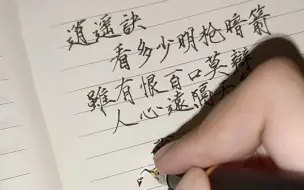 逍遥訣
看多少明枪暗箭
雖有恨百口莫辯
人心遠隔